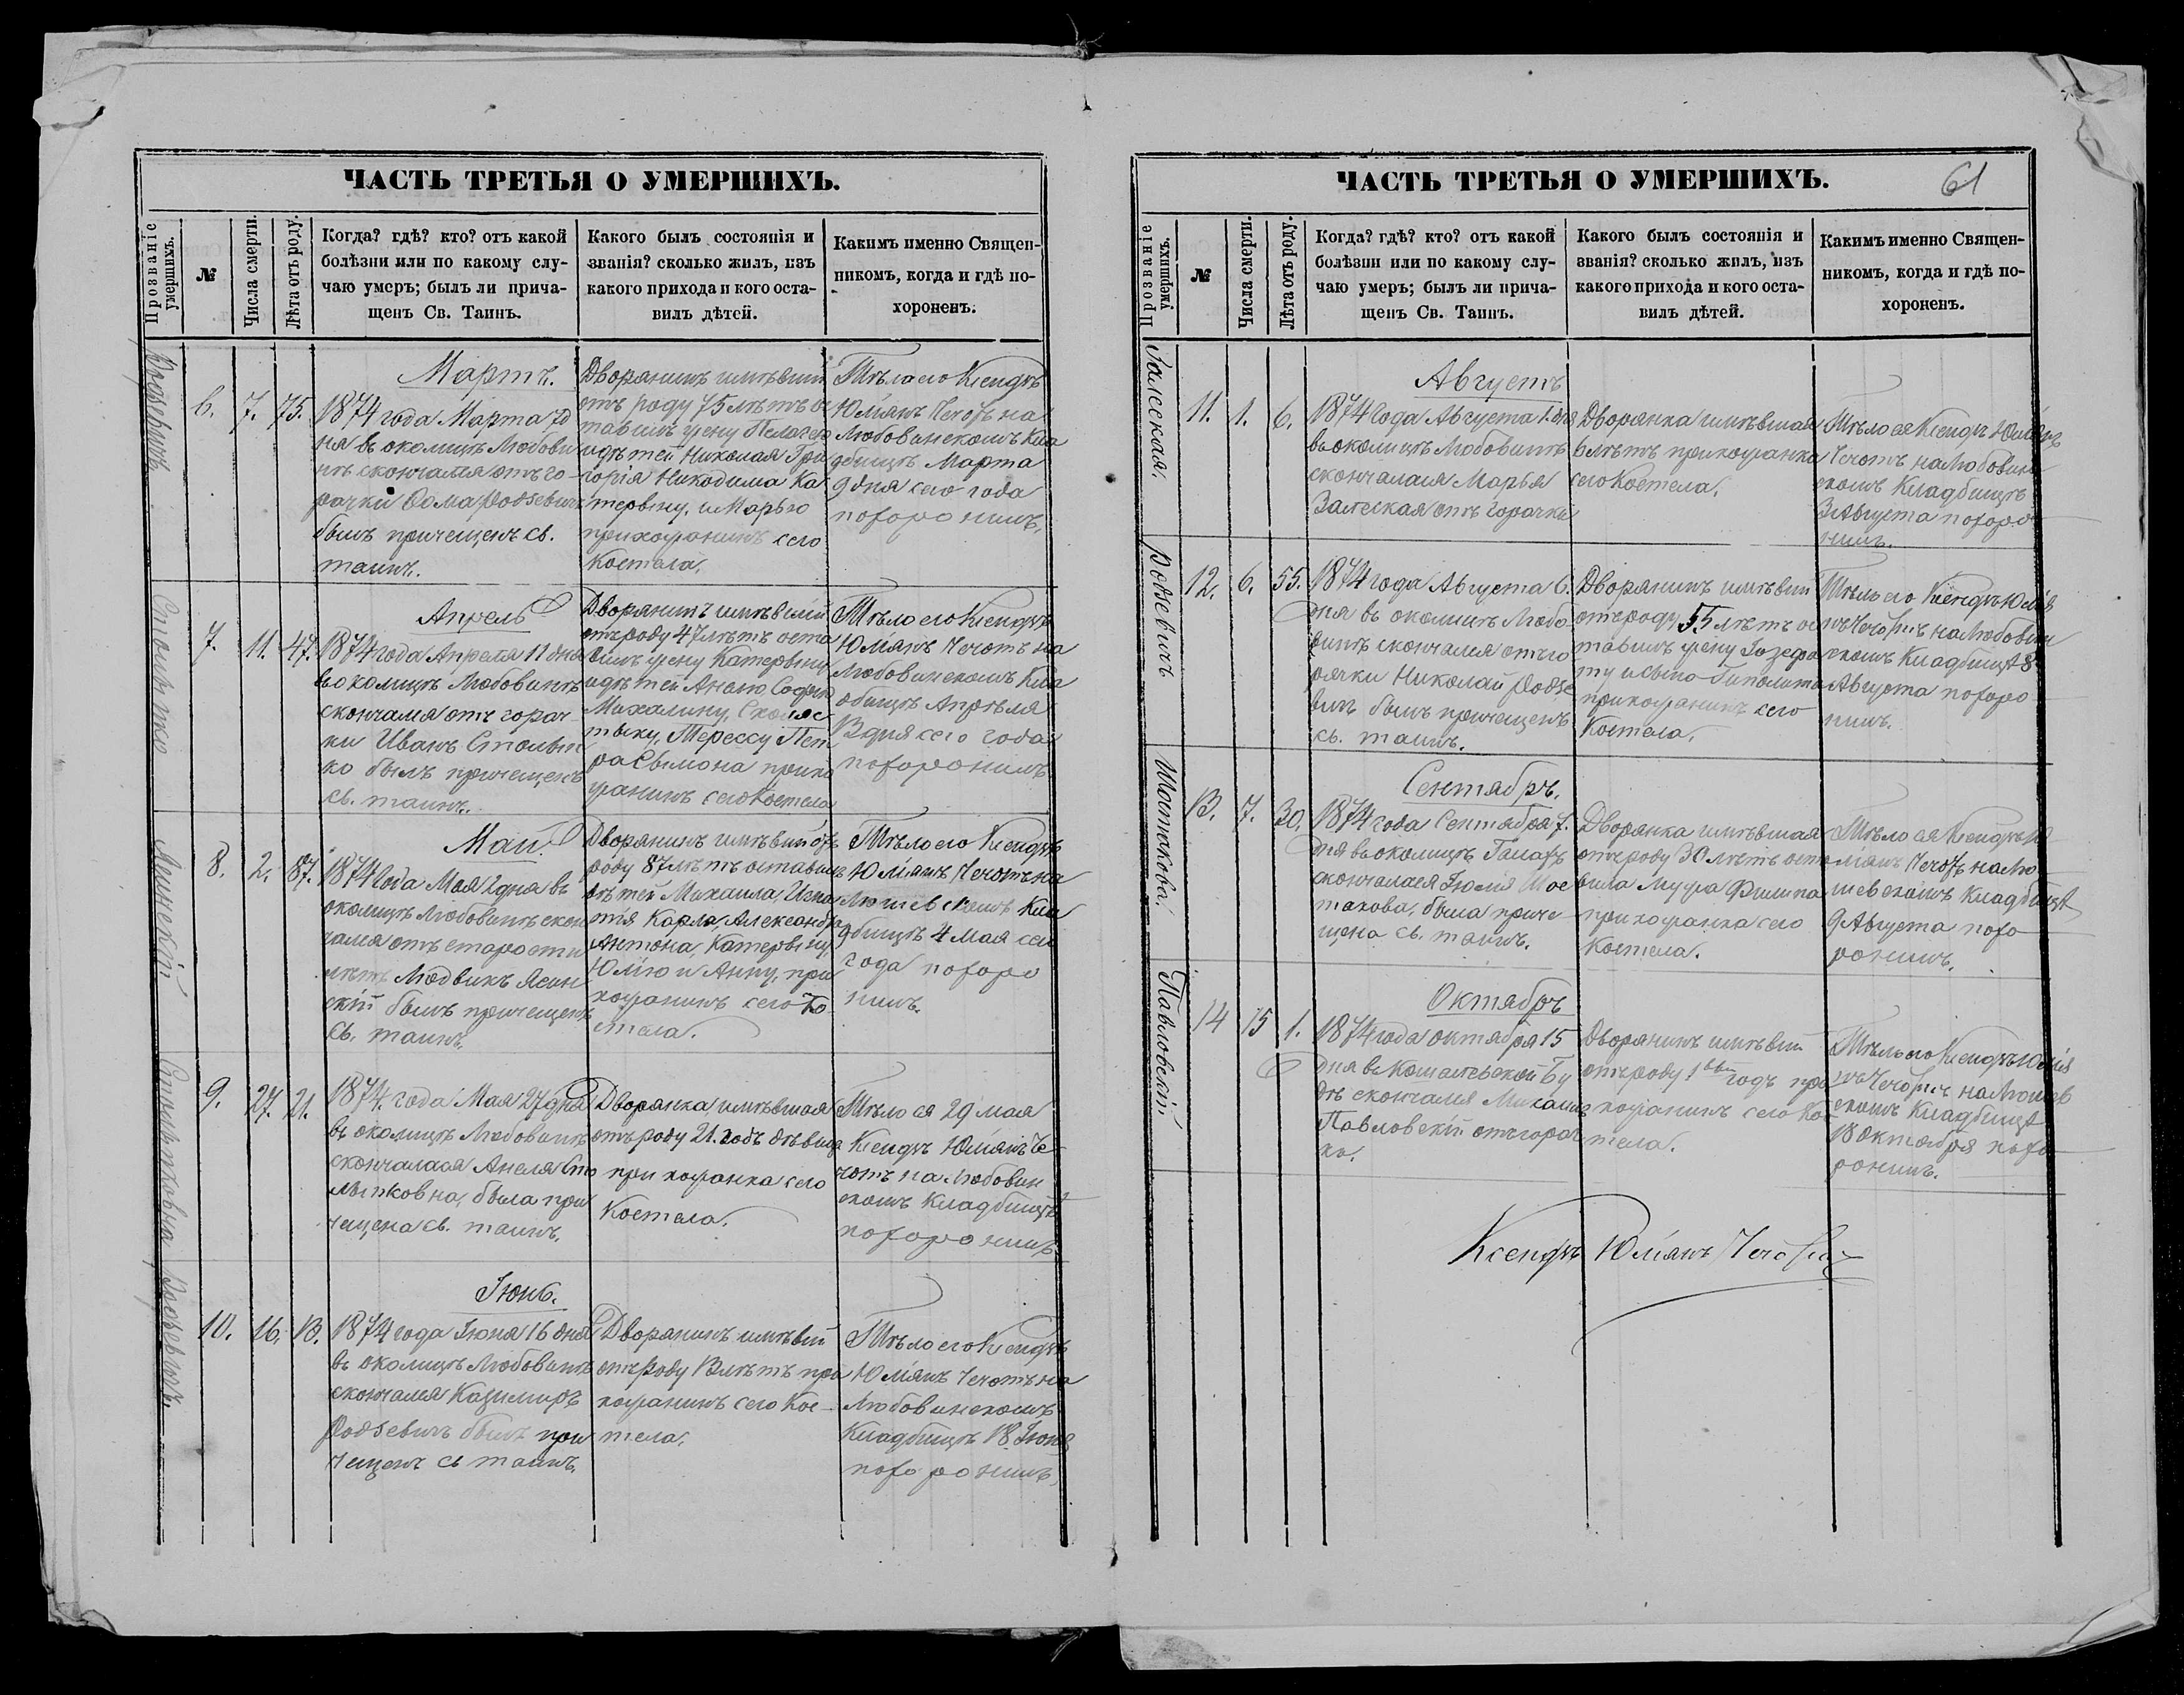 ЧАСТЬ ТРЕТЬЯ О УМЕРШИХЪ.
Прозваніе умершихъ.
№
Числа смерти.
Лѣта отъ роду.
Когда? гдѣ? кто? отъ какой
болѣзни или по какому слу-
чаю умеръ; былъ ли прича-
щенъ Св. Таинъ.
Какого былъ состоянія и
званія? сколько жилъ, изъ
какого прихода и кого оста-
вилъ дѣтей.
Какимъ именно Священ-
никомъ, когда и гдѣ по-
хороненъ.
6. 7. 75.
Мартъ.
1874 года Марта 7 д
ня въ околицѣ Любови
нѣ скончался отъ го-
рачки Ѳома Родзевичъ
былъ причещенъ св.
таинъ.
Дворянинъ имѣвшій
отъ роду 75 лѣтъ ос
тавилъ жену
и дѣтей Николая Гри
горія Никодима Ка
терыну, и Марью
прихожанинъ сего
Костела.
Тѣло его Ксендзъ
Юліянъ Чечотъ на
Любовинскомъ Кла
дбищѣ Марта
9 дня сего года
похоронилъ.
7. 11. 47.
Апрель
1874 года Апреля 11 дня
въ околицѣ Любовинѣ
скончался отъ горач-
ки Иванъ Столып
ко былъ причещенъ
св. таинъ.
Дворянинъ имѣвшій
отъ роду 47 лѣтъ оста
вилъ жену Катерыну
и дѣтей Анелю, Софію
Михалину,
Терессу Пет
ра Сымона прихо
жанинъ сего Костела
Тѣло его Ксендзъ
Юліянъ Чечотъ на
Любовинскомъ Кла
дбищѣ Апрѣля
13 дня сего года
похоронилъ
Ясинскій.
8. 2. 87.
Май.
1874 года Мая 2 дня въ
околицѣ Любовинѣ скон
чался отъ старости
лѣтъ Людвикъ Ясин
скій былъ причещенъ
св. таинъ.
Дворянинъ имѣвшій отъ
роду 87 лѣтъ оставилъ
дѣтей Михаила, Игна
тія Карла, Александра
Антона, Катерыну,
Юлію и Анну, при
хожанинъ сего Ко
стела.
Тѣло его Ксендзъ
Юліянъ Чечотъ на
Кла
дбищѣ 4 Мая сего
года похоро
нилъ.
9. 27. 21.
1874. года Мая 27 дня
въ околицѣ Любовинѣ
скончалася Анеля Сто
лыпковна, была при
чещена св. таинъ.
Дворянка, имѣвшая
отъ роду 21. годъ дѣвица
прихожанка сего
Костела.
Тѣло ея 29 мая
Ксендзъ Юліянъ Че
чотъ на Любовин
скомъ Кладбищѣ
похоронилъ
10. 16. 13.
Іюнь.
1874 года Іюня 16 дня
въ околицѣ Любовинѣ
скончался Казимиръ
Родзевичъ былъ при
чещенъ св таинъ.
Дворянинъ имѣвшій
отъ роду 13 лѣтъ при
хожанинъ сего Кос-
тела.
Тѣло его Ксендзъ
Юліянъ Чечотъ на
Любовинскомъ
Кладбищѣ 18 Іюня
похоронилъ
ЧАСТЬ ТРЕТЬЯ О УМЕРШИХЪ.
61
Прозваніе умершихъ.
№
Числа смерти.
Лѣта отъ роду.
Когда? гдѣ? кто? отъ какой
болѣзни или по какому слу-
чаю умеръ; былъ ли прича-
щенъ Св. Таинъ.
Какого былъ состоянія и
званія? сколько жилъ, изъ
какого прихода и кого оста-
вилъ дѣтей.
Какимъ именно Священ-
никомъ, когда и гдѣ по-
хороненъ.
11. 1. 6.
Августъ
1874 года Августа 1. дня
въ околицѣ Любовинѣ
скончалася Марья
Залеская отъ горачки
Дворянка имѣвшая
6 лѣтъ прихожанка
сего Костела.
Тѣло ея Ксендзъ Юліянъ
Чечотъ на Любовин
скомъ Кладбищѣ
3 Августа похоро
нилъ.
Родзевичъ
12. 6. 55.
1874 года Августа 6.
дня въ околицѣ Любо
винѣ скончался отъ го
рячки Николай Родзе
вичъ былъ причещенъ
св. таинъ.
Дворянинъ имѣвшій
отъ роду 55 лѣтъ ос
тавилъ жену Іозефа
ту и сына Гиполита
прихожанинъ сего
Костела.
Тѣло его Ксендзъ Юлія
нъ Чечотъ на Любовин
скомъ Кладбищѣ 8
Августа похоро
нилъ.
Шостакова.
13. 7. 30.
Сентябръ.
1874 года Сентября 7.
дня въ околицѣ
скончалася Юлія Шос
такова, была приче
щена св. таинъ.
Дворянка имѣвшая
отъ роду 30 лѣтъ оста
вила мужа Филипа
прихожанка сего
Костела.
Тѣло ея Ксендзъ Ю
ліянъ Чечотъ на
Кладбищѣ
9 Августа похо
ронилъ.
Павловскій.
14 15 1.
Октябръ
1874 года Октября 15
дня въ Бу
дѣ скончался Михаилъ
Павловскій отъ горач
ки.
Дворянинъ имѣвшій
отъ роду 1 годъ при
хожанинъ сего Кос
тела.
Тѣло его Ксендзъ Юлія
нъ Чечотъ на
скомъ Кладбищѣ
18 Октября похо
ронилъ.
Ксендзъ Юліянъ Чечотъ